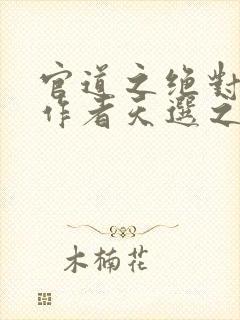 官道之绝對
作者天選之
木楠花